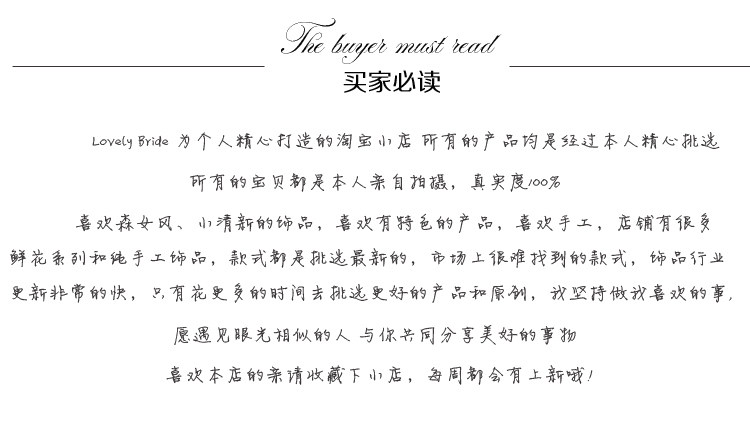 The buyer must read
买家必读
Lovely Bride 为个人精心打造的淘宝小店 所有的产品均是经过本人精心挑选
所有的宝贝都是本人亲自拍摄，真实度100%
喜欢森女风、小清新的饰品，喜欢有特色的产品，喜欢手工，店铺有很多
鲜花系列和纯手工饰品，款式都是挑选最新的，市场上很难找到的款式，饰品行业
更新非常的快，只有花更多的时间去挑选更好的产品和原创，我坚持做我喜欢的事，
愿遇见眼光相似的人 与你共同分享美好的事物
喜欢本店的亲请收藏下小店，每周都会有上新哦！